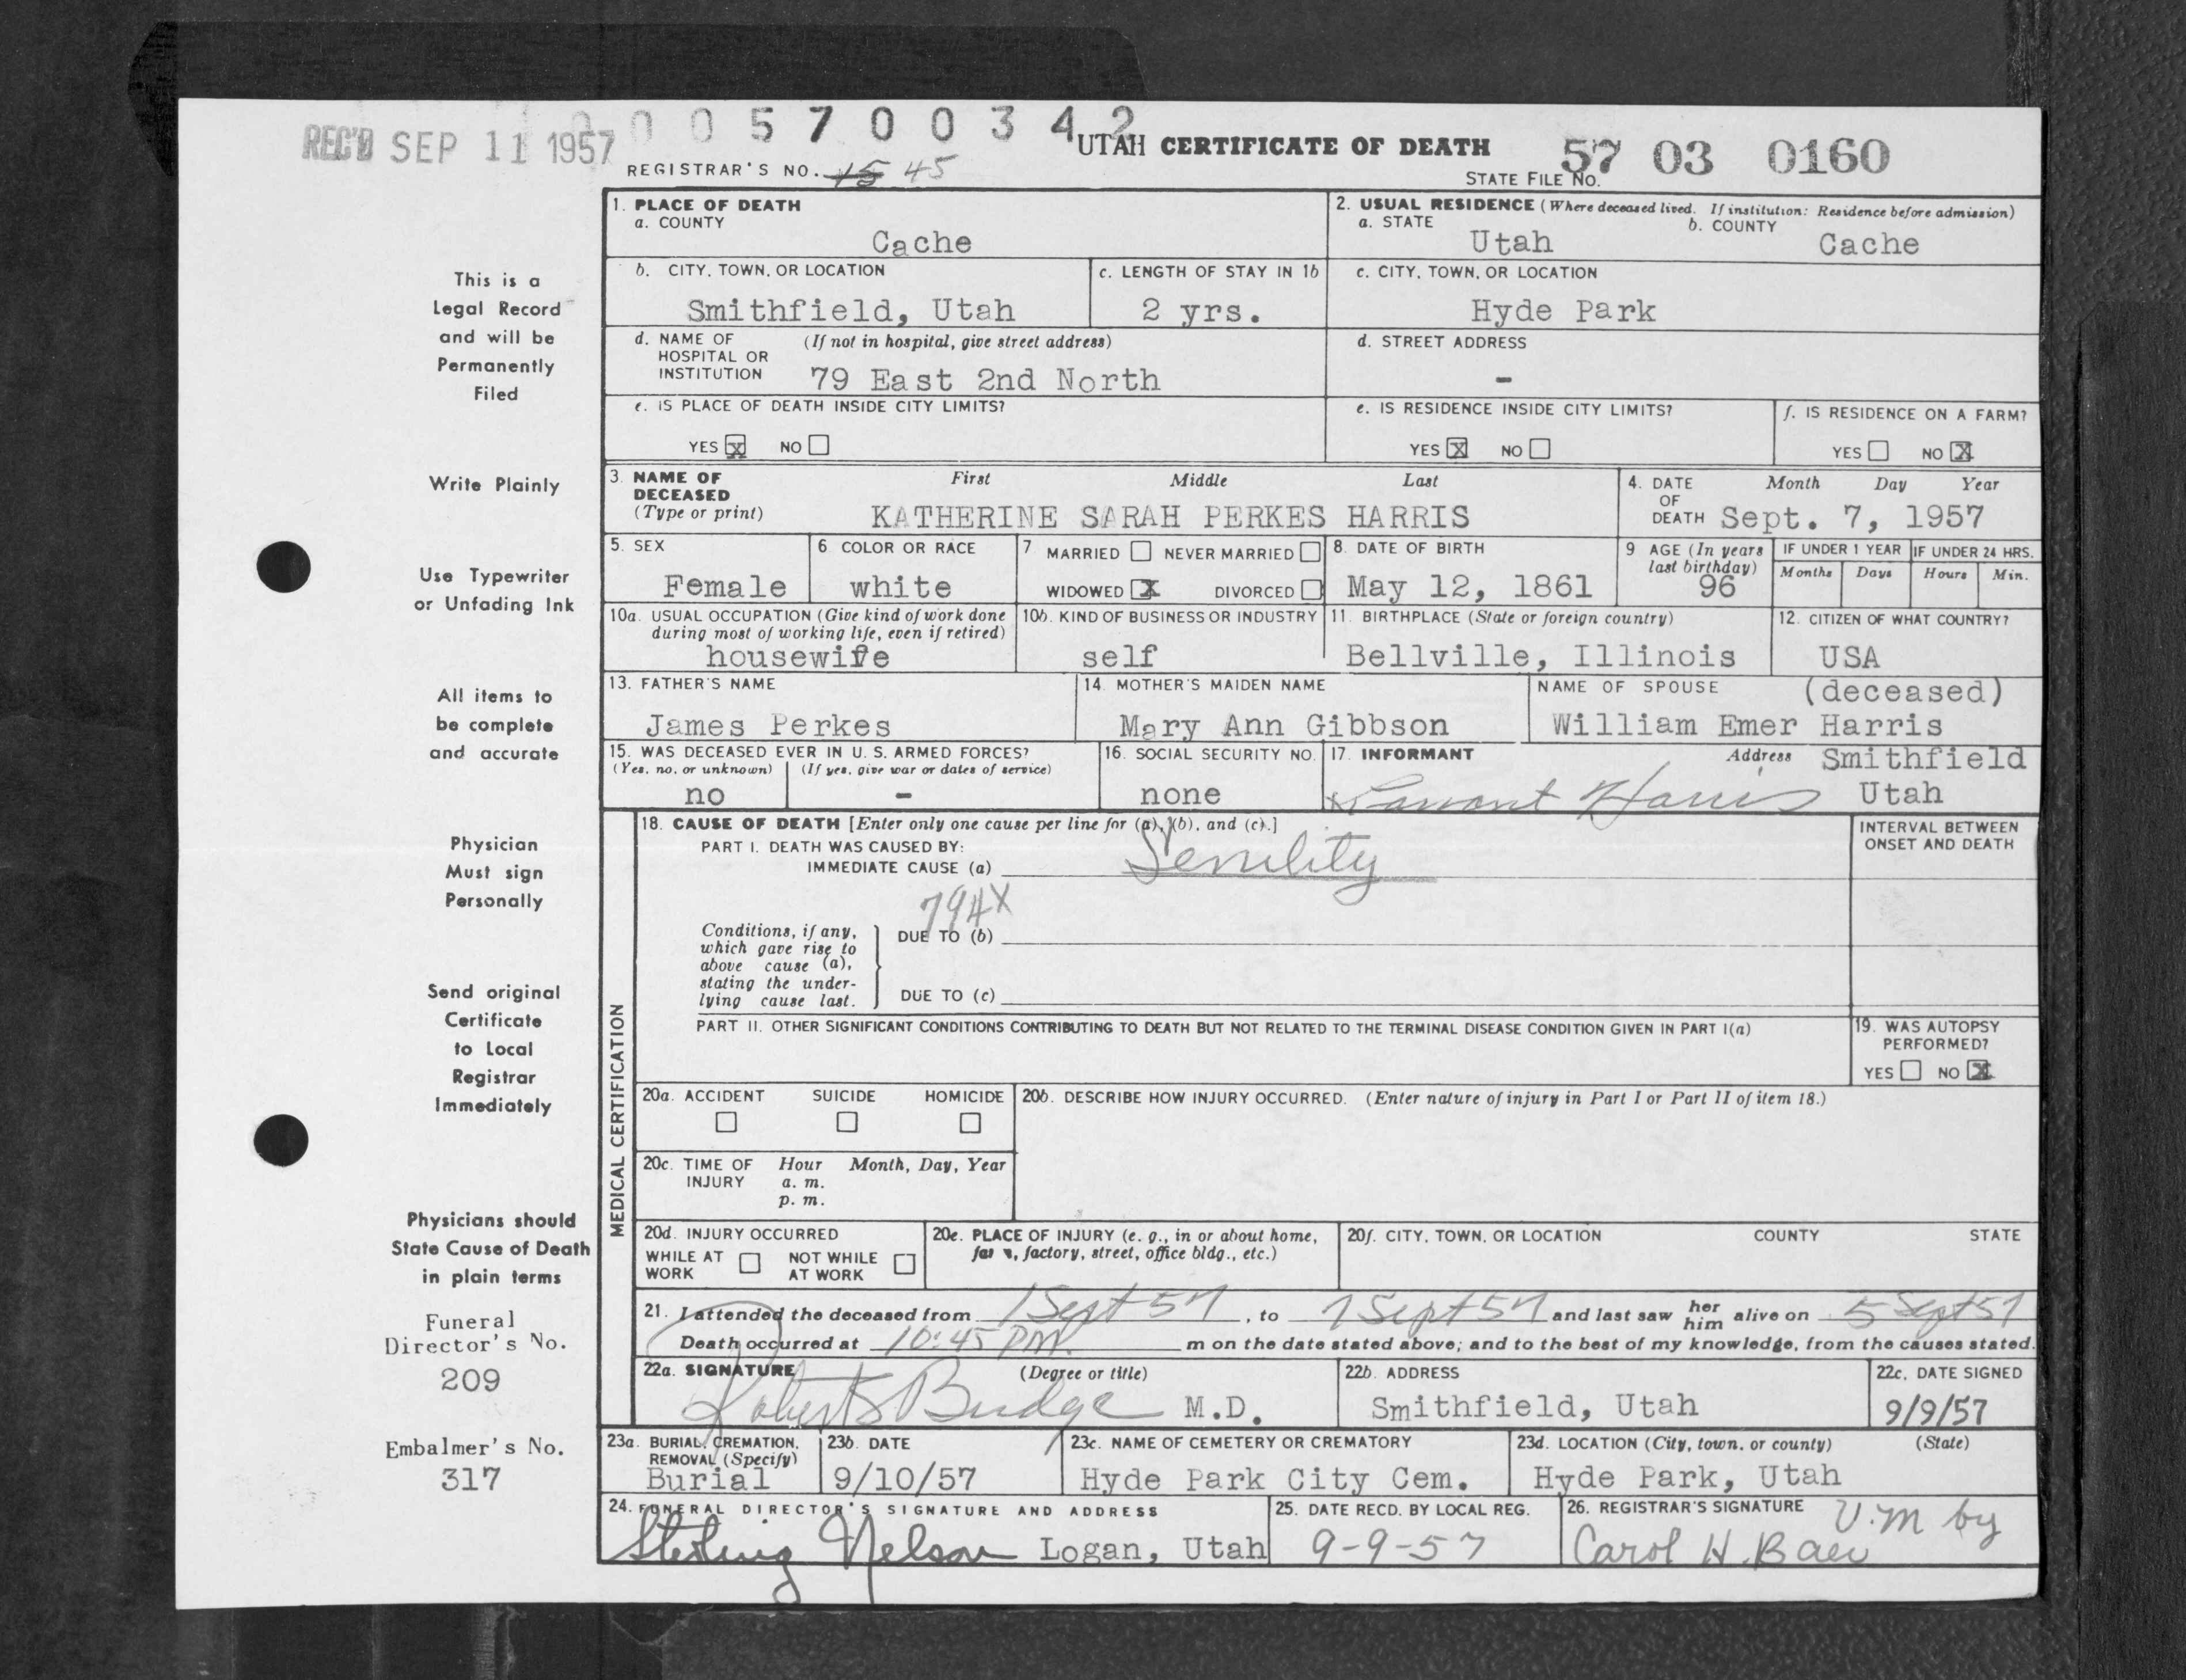 REC'D SEP 11 1957
0 0 5 7 0 0 3 4 2
UTAH CERTIFICATE OF DEATH
57 03 0160
REGISTRAR'S NO. 15 45
STATE FILE NO.
1. PLACE OF DEATH
a. COUNTY
Cache
2. USUAL RESIDENCE (Where deceased lived. If institution: Residence before admission)
a. STATE
Utah
b. COUNTY
Cache
b. CITY, TOWN, OR LOCATION
Smithfield, Utah
c. LENGTH OF STAY IN 1b
2 yrs.
c. CITY, TOWN, OR LOCATION
Hyde Park
d. NAME OF (If not in hospital, give street address)
HOSPITAL OR
INSTITUTION 79 East 2nd North
d. STREET ADDRESS
-
e. IS PLACE OF DEATH INSIDE CITY LIMITS?
YES X NO
e. IS RESIDENCE INSIDE CITY LIMITS?
YES X NO
f. IS RESIDENCE ON A FARM?
YES NO X
3. NAME OF DECEASED (Type or print)
First Middle Last
KATHERINE SARAH PERKES HARRIS
4. DATE OF DEATH
Month Day Year
Sept. 7, 1957
5. SEX
Female
6 COLOR OR RACE
white
7 MARRIED NEVER MARRIED
WIDOWED X DIVORCED
8. DATE OF BIRTH
May 12, 1861
9 AGE (In years last birthday)
96
IF UNDER 1 YEAR
Months Days
IF UNDER 24 HRS.
Hours Min.
10a. USUAL OCCUPATION (Give kind of work done
during most of working life, even if retired)
housewife
10b. KIND OF BUSINESS OR INDUSTRY
self
11. BIRTHPLACE (State or foreign country)
Bellville, Illinois
12. CITIZEN OF WHAT COUNTRY?
USA
13. FATHER'S NAME
James Perkes
14. MOTHER'S MAIDEN NAME
Mary Ann Gibbson
NAME OF SPOUSE (deceased)
William Emer Harris
15. WAS DECEASED EVER IN U. S. ARMED FORCES?
(Yes, no, or unknown) (If yes, give war or dates of service)
no -
16. SOCIAL SECURITY NO.
none
17. INFORMANT
Harris
Address Smithfield
Utah
MEDICAL CERTIFICATION
18. CAUSE OF DEATH [Enter only one cause per line for (a), (b), and (c).]
PART I. DEATH WAS CAUSED BY:
IMMEDIATE CAUSE (a) Senility
INTERVAL BETWEEN
ONSET AND DEATH
794X
Conditions, if any,
which gave rise to
above cause (a),
stating the under-
lying cause last.
DUE TO (b)
DUE TO (c)
PART II. OTHER SIGNIFICANT CONDITIONS CONTRIBUTING TO DEATH BUT NOT RELATED TO THE TERMINAL DISEASE CONDITION GIVEN IN PART I(a)
19. WAS AUTOPSY
PERFORMED?
YES NO X
20a. ACCIDENT SUICIDE HOMICIDE
20b. DESCRIBE HOW INJURY OCCURRED. (Enter nature of injury in Part I or Part II of item 18.)
20c. TIME OF INJURY
Hour Month, Day, Year
a. m.
p. m.
20d. INJURY OCCURRED
WHILE AT WORK NOT WHILE AT WORK
20e. PLACE OF INJURY (e. g., in or about home,
farm, factory, street, office bldg., etc.)
20f. CITY, TOWN, OR LOCATION COUNTY STATE
21. I attended the deceased from 1 Sept 57, to 7 Sept 57 and last saw her him alive on 5 Sept 57
Death occurred at 10:45 PM. m on the date stated above; and to the best of my knowledge, from the causes stated.
22a. SIGNATURE (Degree or title)
Robert S Budge M.D.
22b. ADDRESS
Smithfield, Utah
22c. DATE SIGNED
9/9/57
23a. BURIAL, CREMATION,
REMOVAL (Specify)
Burial
23b. DATE
9/10/57
23c. NAME OF CEMETERY OR CREMATORY
Hyde Park City Cem.
23d. LOCATION (City, town, or county) (State)
Hyde Park, Utah
24. FUNERAL DIRECTOR'S SIGNATURE AND ADDRESS
Sterling Nelson Logan, Utah
25. DATE RECD. BY LOCAL REG.
9-9-57
26. REGISTRAR'S SIGNATURE
V.M by
Carol H.
This is a
Legal Record
and will be
Permanently
Filed
Write Plainly
Use Typewriter
or Unfading Ink
All items to
be complete
and accurate
Physician
Must sign
Personally
Send original
Certificate
to Local
Registrar
Immediately
Physicians should
State Cause of Death
in plain terms
Funeral
Director's No.
209
Embalmer's No.
317